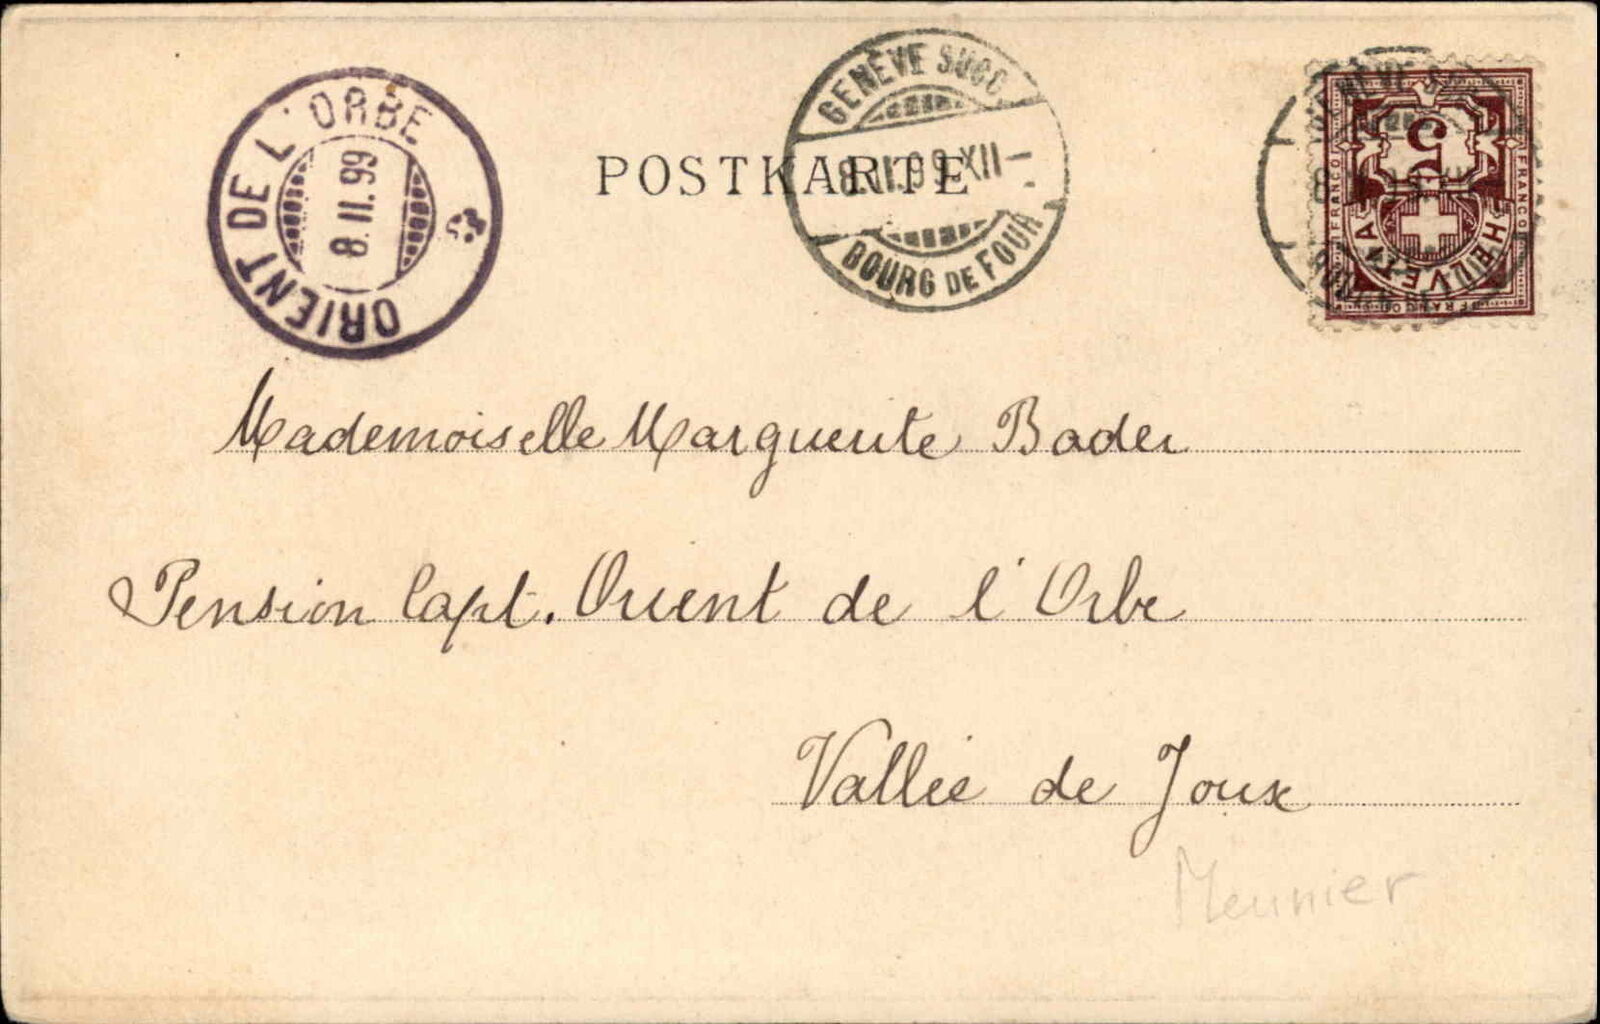 ORIENT DE L'ORBE
8. II. 99
GENÈVE SUCC
8. II. 99. XII –
BOURG DE FOUR
POSTKARTE
5
HELVETIA
FRANCO
FRANCO
FRANCO
Mademoiselle Marguerite Bader
Pension Capt. Orient de l'Orbe
Vallée de Joux
Meunier